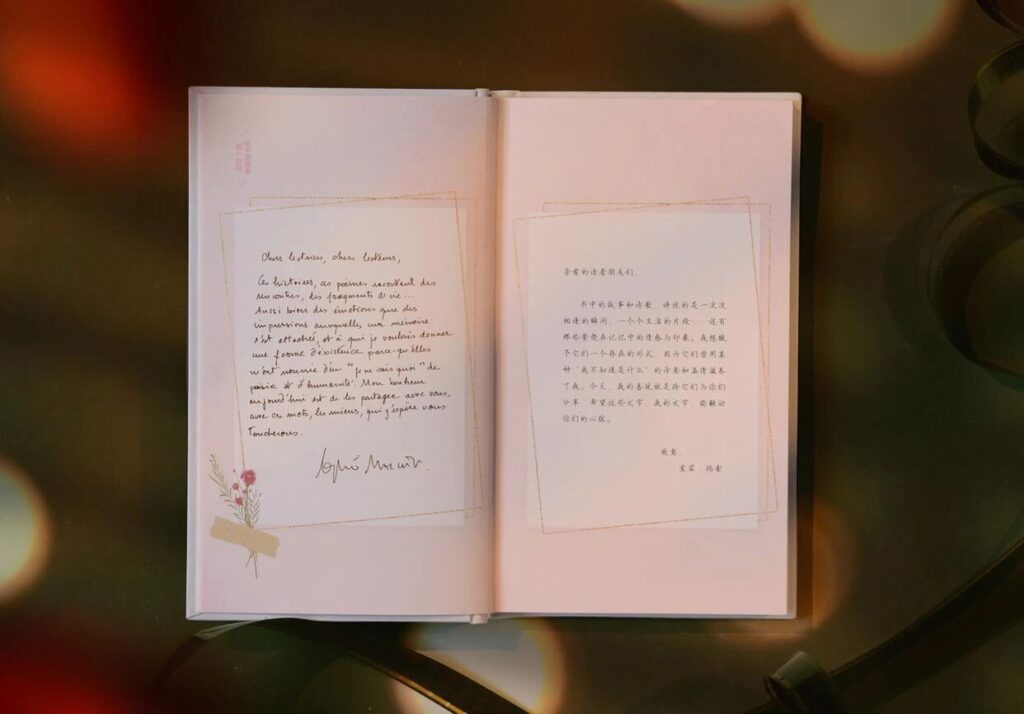 Chers lectrices, chers lecteurs,
Ces histoires, ces poèmes racontent des
rencontres, des fragments de vie...
Aussi bien des émotions que des
impressions auxquelles ma mémoire
s'est attachée, et à qui je voulais donner
une forme d'existence parce qu'elles
m'ont nourrie d'un "je ne sais quoi" de
poésie et d'humanité. Mon bonheur
aujourd'hui est de les partager avec vous,
avec ces mots, les miens, qui j'espère vous
toucherons.
亲爱的读者朋友们,
书中的故事和诗歌, 讲述的是一次次
相逢的瞬间, 一个个生活的片段……还有
那些萦绕在记忆中的情感与印象。我想赋
予它们一个存在的形式, 因为它们曾用某
种"我不知道是什么"的诗意和温情滋养
了我。今天, 我的喜悦就是将它们与你们
分享, 希望这些文字, 我的文字, 能触动
你们的心弦。
致意,
苏菲·玛索